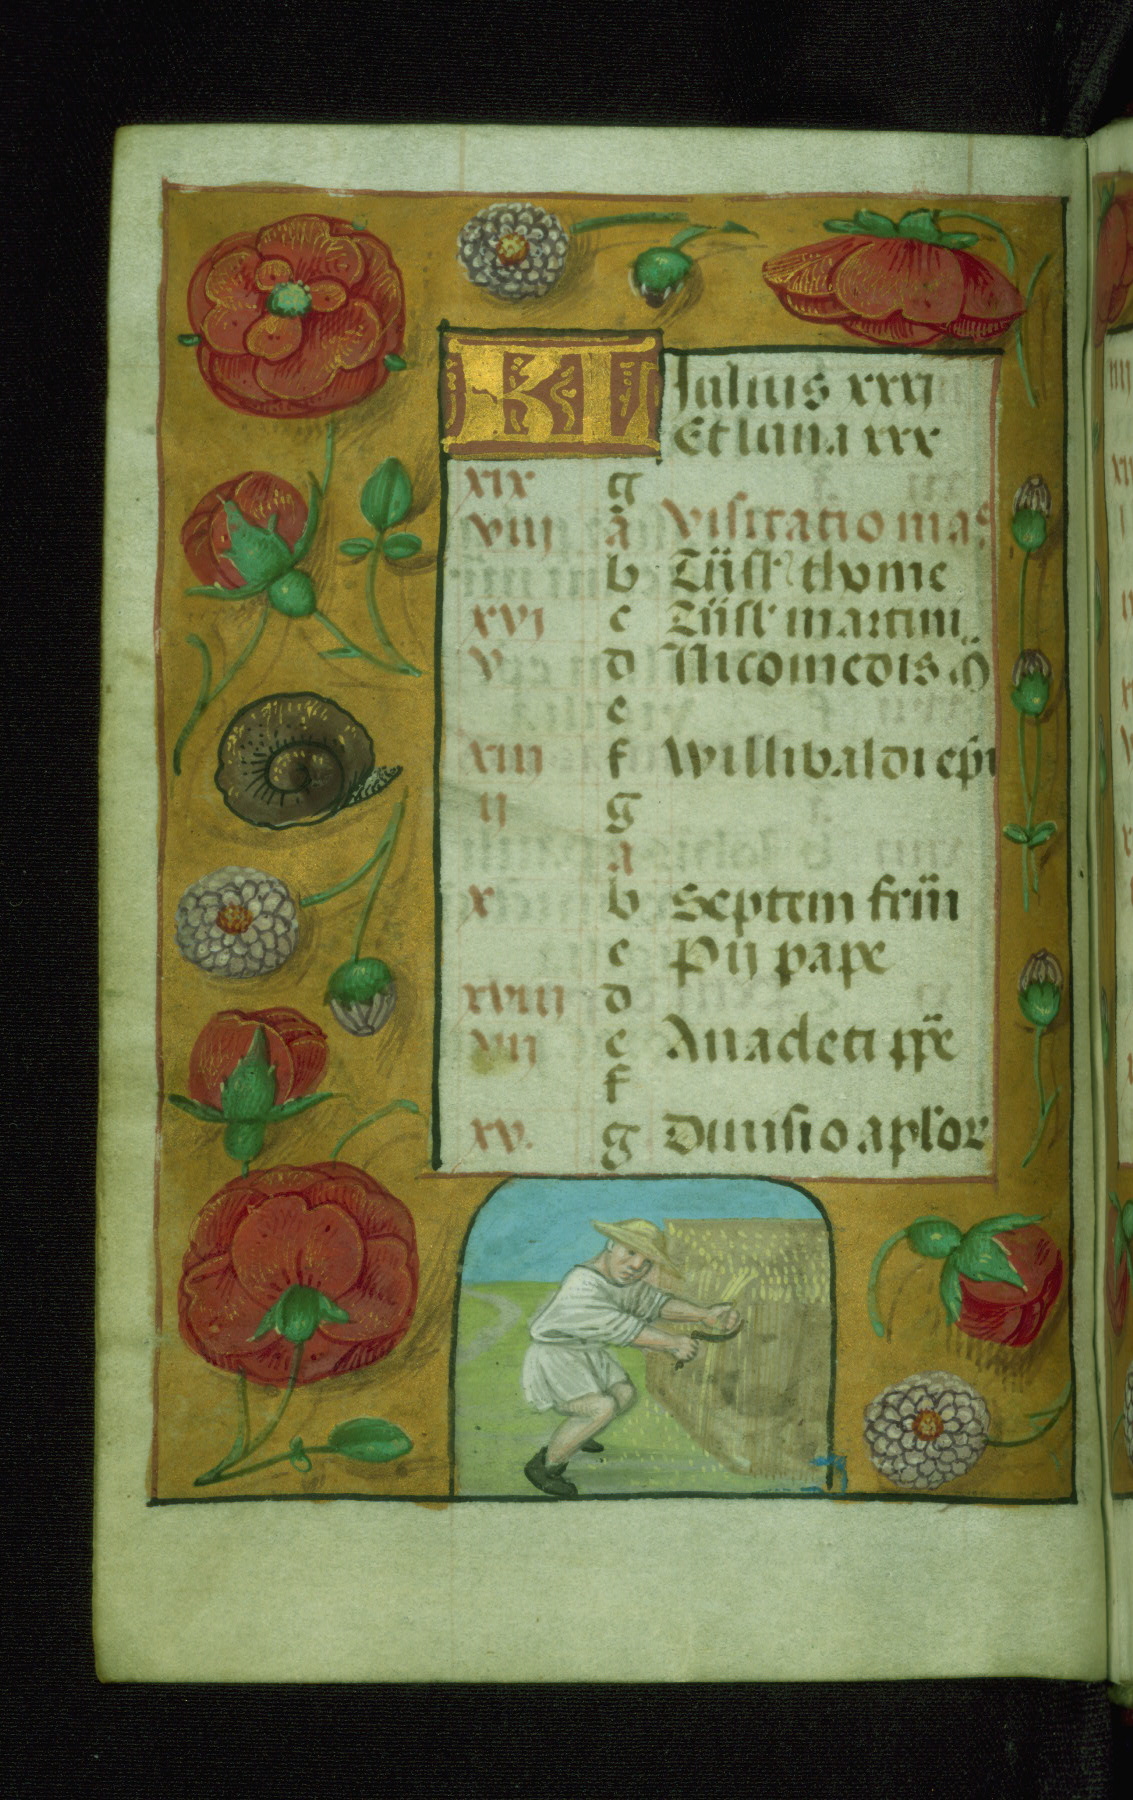 KL Julius xxxi
Et luna xxx
xix g
viii a Visitatio mas
b Trasl thome
xvi c Trasl martini
v d Nicomedis m̄
e
xiii f Willibaldi ep̄i
ii g
a
x b Septem fr̄m
c Pij pape
xviii d
vii e Anacleti pp̄e
f
xv. g Diuisio aplor